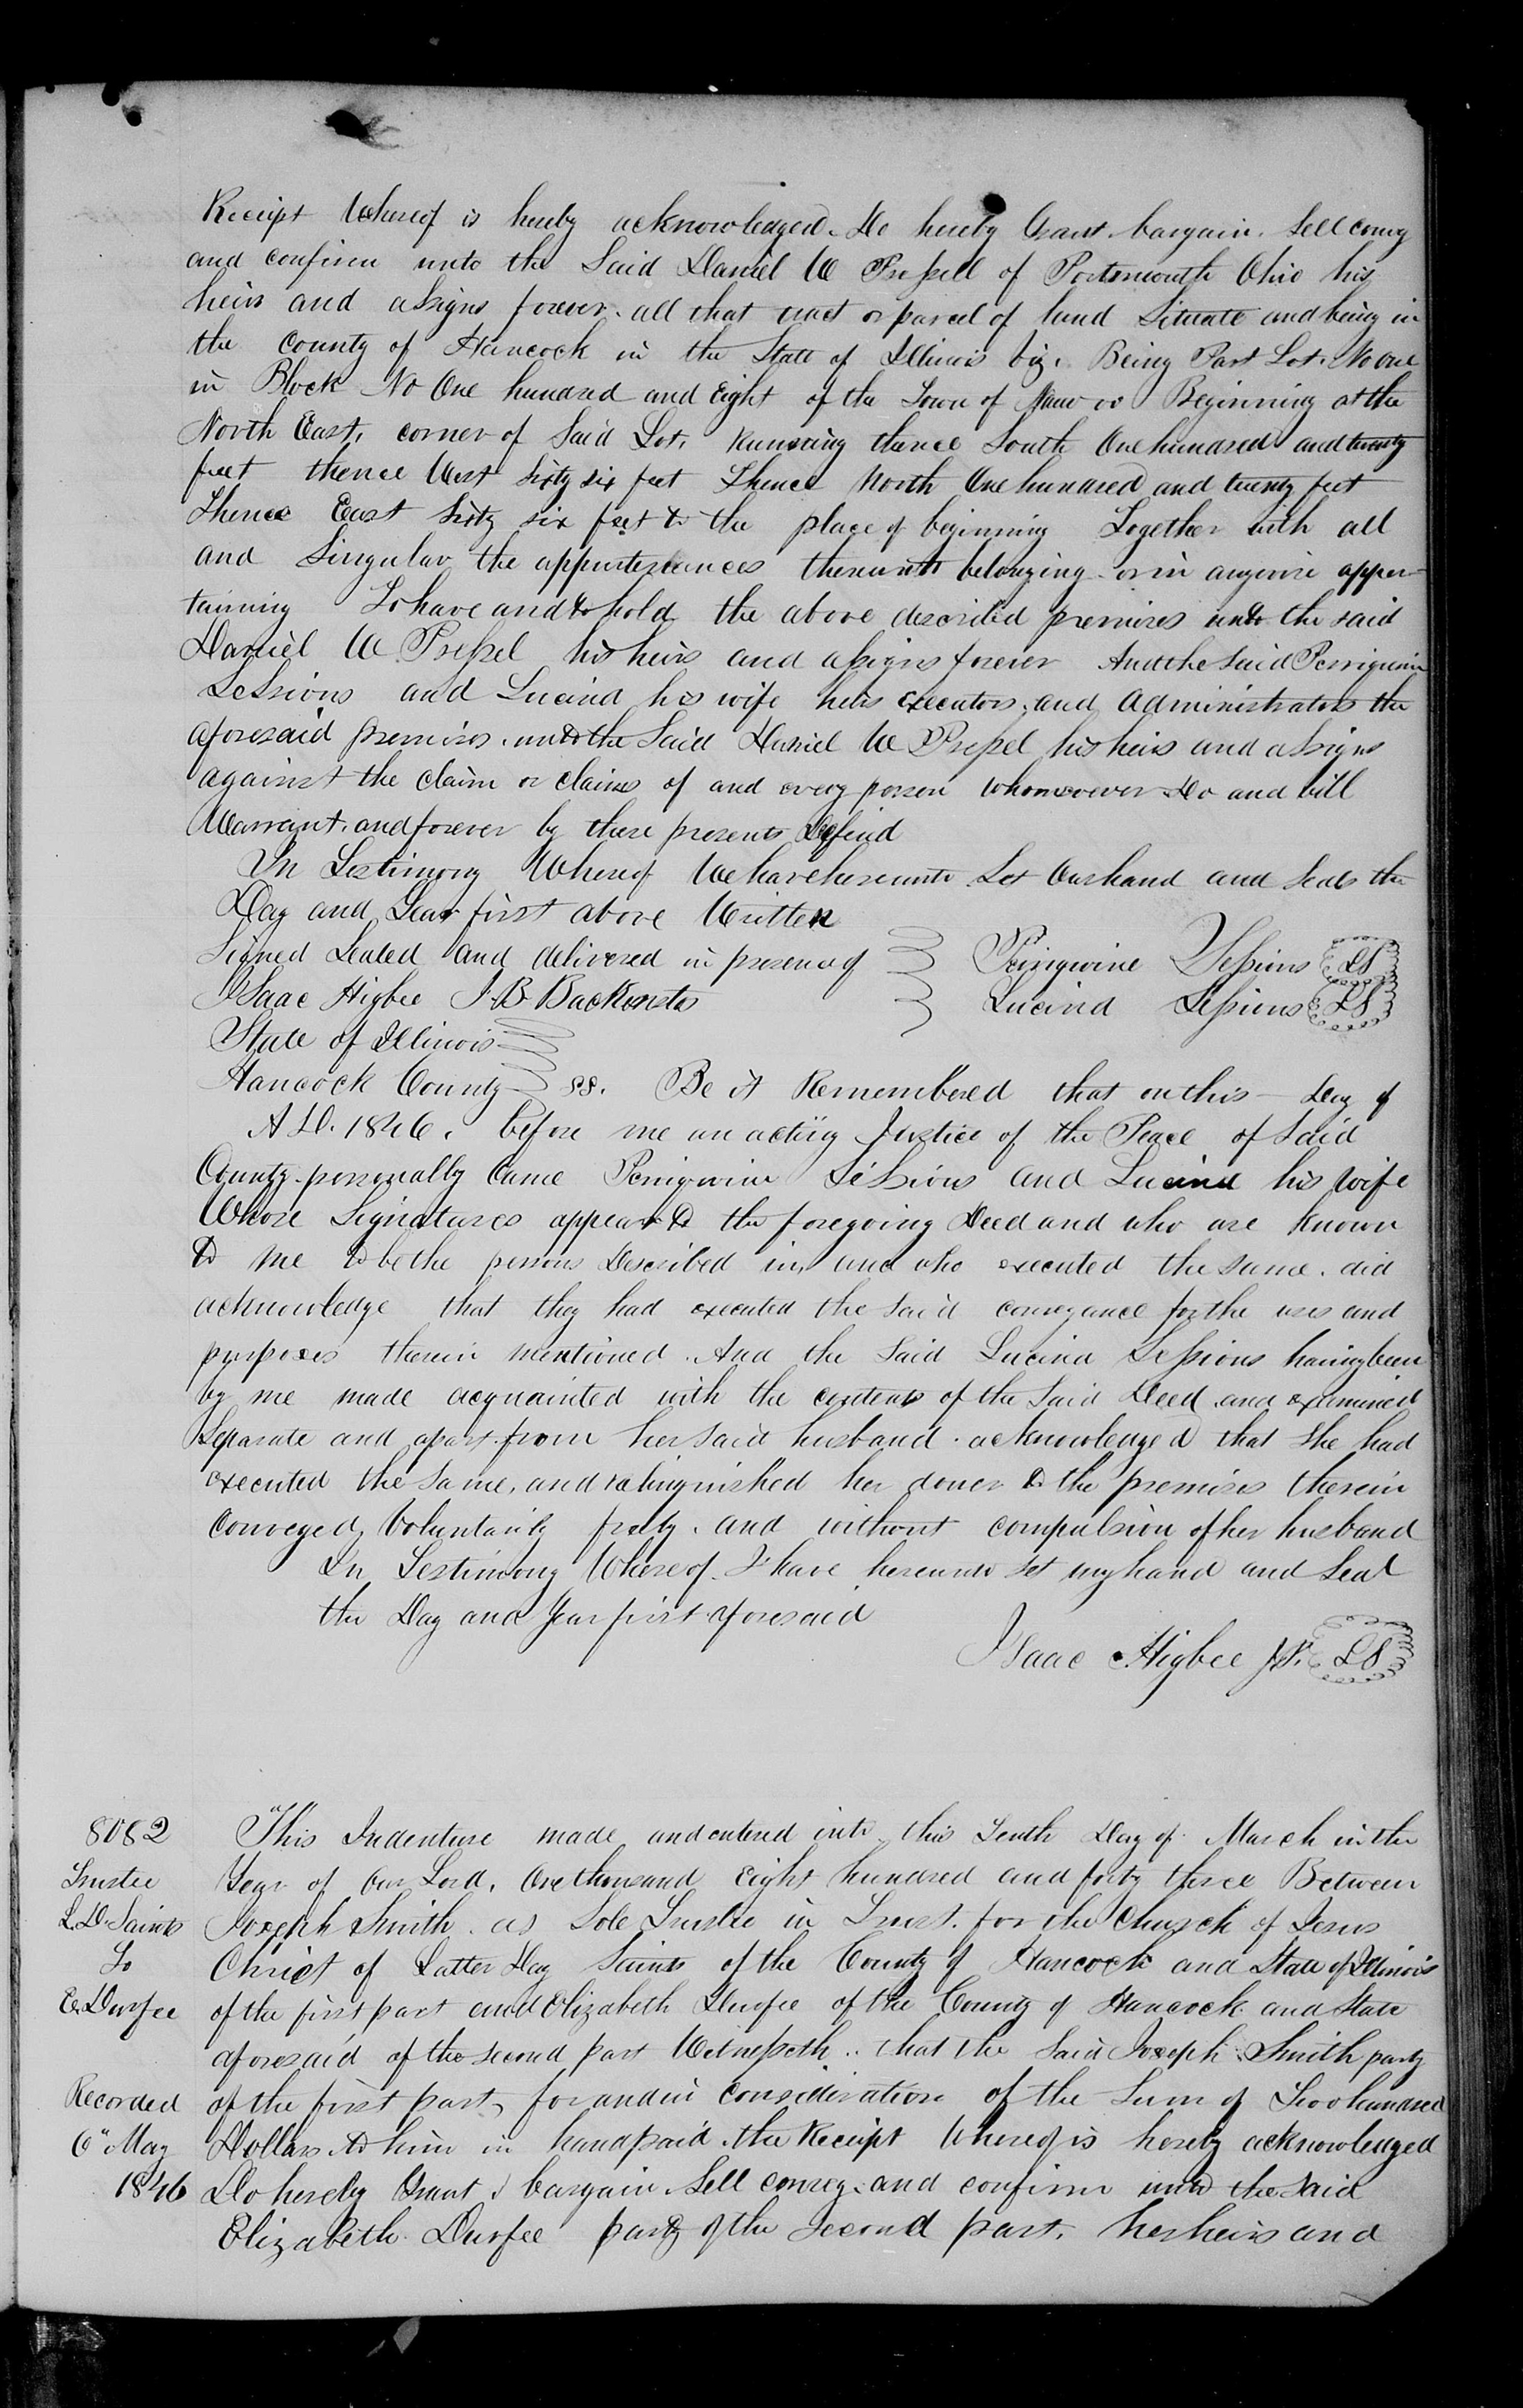 Receipt Whereof is hereby acknowledged. Do hereby Grant bargain. Sell convey
and confirm unto the Said Daniel W Pressell of Portsmouth Ohio his
heirs and assigns forever. all that tract or parcel of land Situate and being in
the County of Hancock in the State of Illinois viz. Being Part Lot. No one
in Block No One hundred and Eight of the Town of Nauvoo Beginning at the
North East, corner of Said Lot, Running thence South One hundred and twenty
feet thence West Sixty six feet Thence North One hundred and twenty feet
Thence East Sixty six feet to the place of beginning Together with all
and Singular the appurtenances thereunto belonging or in anywise apper-
taining To have and to hold the above described premises unto the said
Daniel W. Pressel his heirs and assigns forever And the Said Perrigwin
Sessions and Lucind his wife heirs executors, and administrators the
aforesaid premises. unto the Said Daniel W Pressel his heirs and assigns
against the claim or claims of and every person Whomsoever Do and Will
Warrant, and forever by these presents Defend
In Testimony Whereof We have hereunto Set Our hand and Seals the
Day and Year first above Written
Signed Sealed and delivered in presence of Perrigwine Sessions LS
Isaac Higbee J. B. Backenstos Lucind Sessions LS
State of Illinois
Hancock County SS. Be it Remembered that on this — Day of
A D. 1846. before me an acting Justice of the Peace of Said
County personally Came Perrigwine Sessions and Lucind his wife
Whose Signatures appear to the foregoing Deed and who are known
to me to be the persons Described in, and who executed the same. did
acknowledge that they had executed the said conveyance for the uses and
purposes therein mentioned. And the Said Lucind Sessions having been
by me made acquainted with the contents of the Said Deed and examined
Separate and apart from her said husband. acknowledged that She had
executed the Same, and relinquished her dower to the premises therein
Conveyed, Voluntarily freely. and without compulsion of her husband
In Testimony Whereof I have hereunto set my hand and Seal
the Day and Year first aforesaid
Isaac Higbee J.P. LS
8082 This Indenture made and entered into this Tenth Day of March in the
Trustee Year of Our Lord, One thousand Eight hundred and forty three Between
L. D. Saints Joseph Smith. as Sole Trustee in Trust. for the Church of Jesus
To Christ of Latter Day Saints of the County of Hancock and State of Illinois
E. Durfee of the first part and Elizabeth Durfee of the County of Hancock and State
aforesaid of the second part Witnesseth.. that the Said Joseph Smith party
Recorded of the first part, for and in consideration of the Sum of Two hundred
6" May Dollars to him in hand paid. the Receipt Whereof is hereby acknowledged
1846 Do hereby Grant, bargain. Sell convey. and confirm unto the Said
Elizabeth Durfee party of the Second part, her heirs and